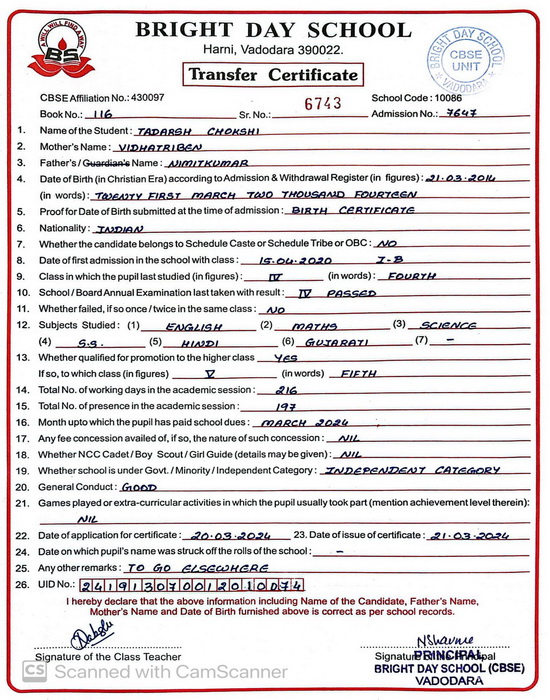 A WILL WILL FIND A WAY
BS
BRIGHT DAY SCHOOL
Harni, Vadodara 390022.
Transfer Certificate
BRIGHT DAY SCHOOL
CBSE
UNIT
VADODARA
CBSE Affiliation No.: 430097 6743 School Code : 10086
Book No.: 116 Sr. No.: Admission No.: 7647
1. Name of the Student : TADARSH CHOKSHI
2. Mother's Name : VIDHATRIBEN
3. Father's / Guardian's Name : NIMITKUMAR
4. Date of Birth (in Christian Era) according to Admission & Withdrawal Register (in figures) : 21.03.2014
(in words) : TWENTY FIRST MARCH TWO THOUSAND FOURTEEN
5. Proof for Date of Birth submitted at the time of admission : BIRTH CERTIFICATE
6. Nationality : INDIAN
7. Whether the candidate belongs to Schedule Caste or Schedule Tribe or OBC : NO
8. Date of first admission in the school with class : 15.04.2020 I-B
9. Class in which the pupil last studied (in figures) : IV (in words) : FOURTH
10. School / Board Annual Examination last taken with result : IV PASSED
11. Whether failed, if so once / twice in the same class : NO
12. Subjects Studied : (1) ENGLISH (2) MATHS (3) SCIENCE
(4) S.S. (5) HINDI (6) GUJARATI (7) -
13. Whether qualified for promotion to the higher class YES
If so, to which class (in figures) V (in words) FIFTH
14. Total No. of working days in the academic session : 216
15. Total No. of presence in the academic session : 197
16. Month upto which the pupil has paid school dues : MARCH 2024
17. Any fee concession availed of, if so, the nature of such concession : NIL
18. Whether NCC Cadet / Boy Scout / Girl Guide (details may be given) : NIL
19. Whether school is under Govt. / Minority / Independent Category : INDEPENDENT CATEGORY
20. General Conduct : GOOD
21. Games played or extra-curricular activities in which the pupil usually took part (mention achievement level therein):
NIL
22. Date of application for certificate : 20.03.2024 23. Date of issue of certificate : 21.03.2024
24. Date on which pupil's name was struck off the rolls of the school : -
25. Any other remarks : TO GO ELSEWHERE
26. UID No.: 241913070012010074
I hereby declare that the above information including Name of the Candidate, Father's Name,
Mother's Name and Date of Birth furnished above is correct as per school records.
Signature of the Class Teacher
PRINCIPAL
BRIGHT DAY SCHOOL (CBSE)
VADODARA
CS Scanned with CamScanner